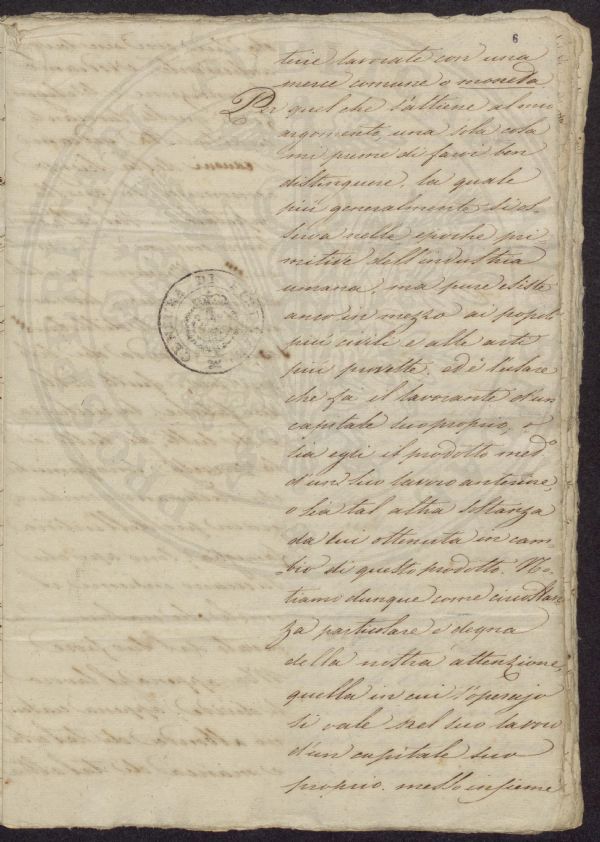 6
terie lavorate con una
merce comune o moneta
Per quel che s'attiene al mio
argomento, una sola cosa
mi preme di farvi ben
distinguere, la quale
più generalmente si os-
serva nelle epoche pri
mitive dell'industria
umana, ma pure esiste
anco in mezzo ai popoli
più civili e alle arti
più provette, ed è l'usare
che fa il lavorante d'un
capitale suo proprio, o
sia egli il prodotto med.o
d'un suo lavoro anteriore,
o sia tal altra sostanza
da lui ottenuta in cam-
bio di questo prodotto. No-
tiamo dunque come circostan
za particolare e degna
della nostra attenzione,
quella in cui l'operajo
si vale nel suo lavoro
d'un capitale suo
proprio, messo insieme
CENSURA DI